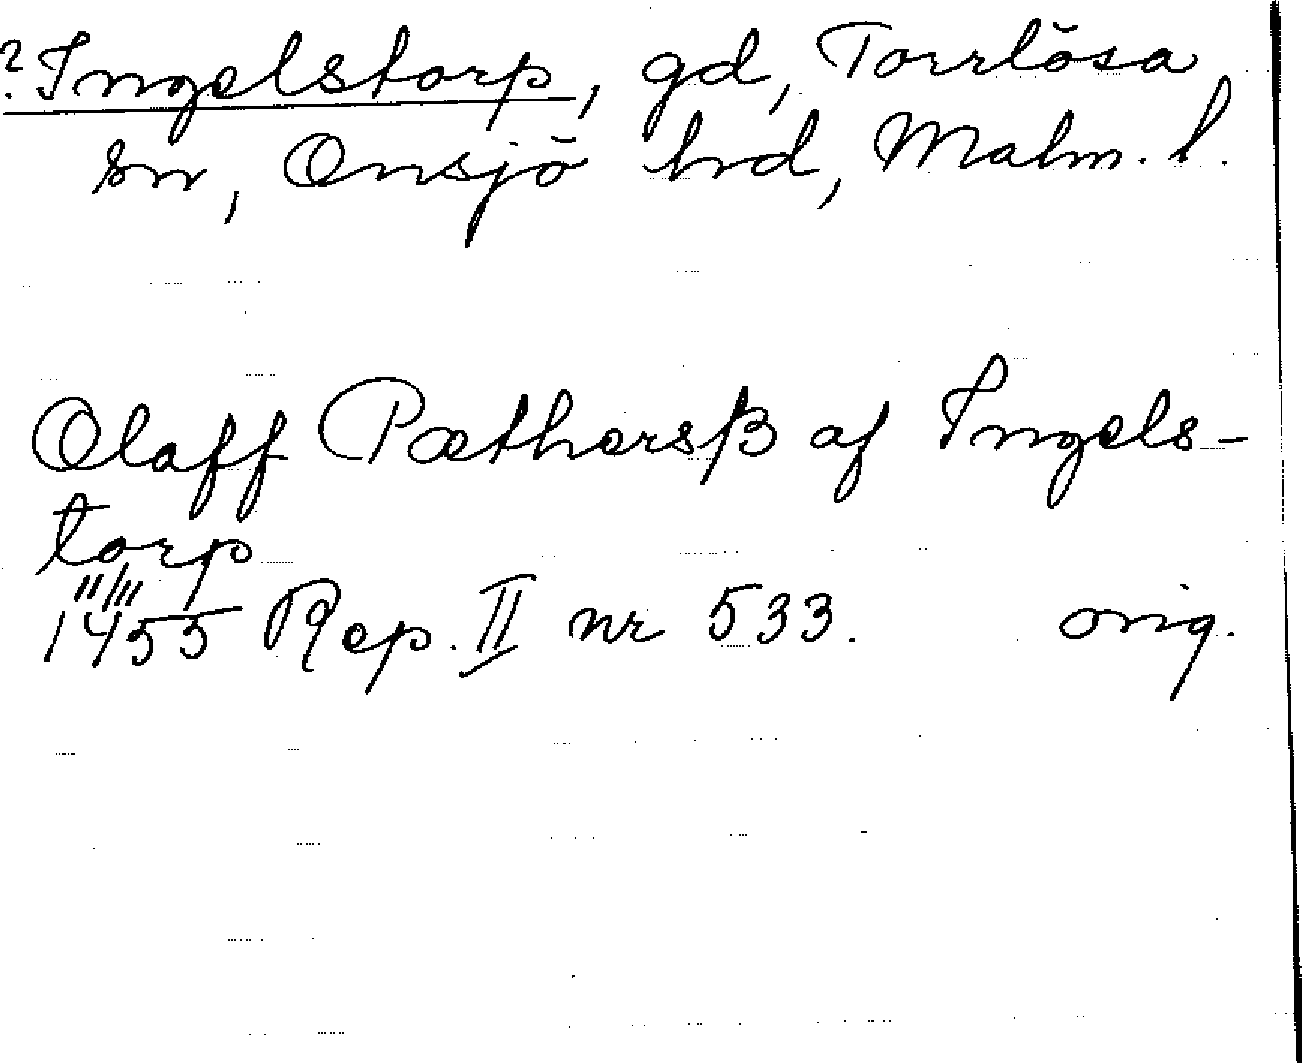 ? Ingelstorp, gd, Torrlösa
sn, Onsjö hrd, Malm. l.
Olaff Pæthersß af Ingels-
torp
11/11
1455 Rep. II nr 533. orig.